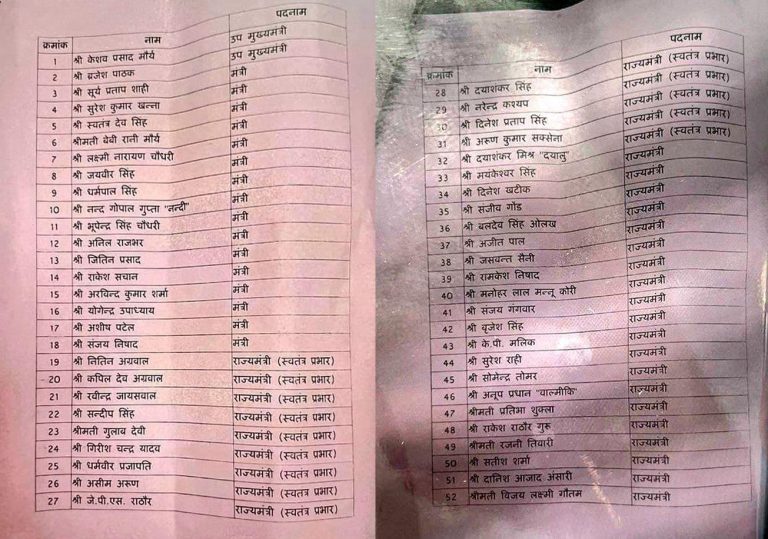 क्रमांक नाम पदनाम
1 श्री केशव प्रसाद मौर्य उप मुख्यमंत्री
2 श्री ब्रजेश पाठक उप मुख्यमंत्री
3 श्री सूर्य प्रताप शाही मंत्री
4 श्री सुरेश कुमार खन्ना मंत्री
5 श्री स्वतंत्र देव सिंह मंत्री
6 श्रीमती बेबी रानी मौर्य मंत्री
7 श्री लक्ष्मी नारायण चौधरी मंत्री
8 श्री जयवीर सिंह मंत्री
9 श्री धर्मपाल सिंह मंत्री
10 श्री नन्द गोपाल गुप्ता "नन्दी" मंत्री
11 श्री भूपेन्द्र सिंह चौधरी मंत्री
12 श्री अनिल राजभर मंत्री
13 श्री जितिन प्रसाद मंत्री
14 श्री राकेश सचान मंत्री
15 श्री अरविन्द कुमार शर्मा मंत्री
16 श्री योगेन्द्र उपाध्याय मंत्री
17 श्री अशीष पटेल मंत्री
18 श्री संजय निषाद मंत्री
19 श्री नितिन अग्रवाल राज्यमंत्री (स्वतंत्र प्रभार)
20 श्री कपिल देव अग्रवाल राज्यमंत्री (स्वतंत्र प्रभार)
21 श्री रवीन्द्र जायसवाल राज्यमंत्री (स्वतंत्र प्रभार)
22 श्री सन्दीप सिंह राज्यमंत्री (स्वतंत्र प्रभार)
23 श्रीमती गुलाब देवी राज्यमंत्री (स्वतंत्र प्रभार)
24 श्री गिरीश चन्द्र यादव राज्यमंत्री (स्वतंत्र प्रभार)
25 श्री धर्मवीर प्रजापति राज्यमंत्री (स्वतंत्र प्रभार)
26 श्री असीम अरूण राज्यमंत्री (स्वतंत्र प्रभार)
27 श्री जे.पी.एस. राठौर राज्यमंत्री (स्वतंत्र प्रभार)
क्रमांक नाम पदनाम
28 श्री दयाशंकर सिंह राज्यमंत्री (स्वतंत्र प्रभार)
29 श्री नरेन्द्र कश्यप राज्यमंत्री (स्वतंत्र प्रभार)
30 श्री दिनेश प्रताप सिंह राज्यमंत्री (स्वतंत्र प्रभार)
31 श्री अरूण कुमार सक्सेना राज्यमंत्री (स्वतंत्र प्रभार)
32 श्री दयाशंकर मिश्र "दयालु" राज्यमंत्री (स्वतंत्र प्रभार)
33 श्री मयंकेश्वर सिंह राज्यमंत्री
34 श्री दिनेश खटीक राज्यमंत्री
35 श्री संजीव गोंड राज्यमंत्री
36 श्री बलदेव सिंह ओलख राज्यमंत्री
37 श्री अजीत पाल राज्यमंत्री
38 श्री जसवन्त सैनी राज्यमंत्री
39 श्री रामकेश निषाद राज्यमंत्री
40 श्री मनोहर लाल मन्नू कोरी राज्यमंत्री
41 श्री संजय गंगवार राज्यमंत्री
42 श्री बृजेश सिंह राज्यमंत्री
43 श्री के.पी. मलिक राज्यमंत्री
44 श्री सुरेश राही राज्यमंत्री
45 श्री सोमेन्द्र तोमर राज्यमंत्री
46 श्री अनूप प्रधान "वाल्मीकि" राज्यमंत्री
47 श्रीमती प्रतिभा शुक्ला राज्यमंत्री
48 श्री राकेश राठौर गुरू राज्यमंत्री
49 श्रीमती रजनी तिवारी राज्यमंत्री
50 श्री सतीश शर्मा राज्यमंत्री
51 श्री दानिश आजाद अंसारी राज्यमंत्री
52 श्रीमती विजय लक्ष्मी गौतम राज्यमंत्री